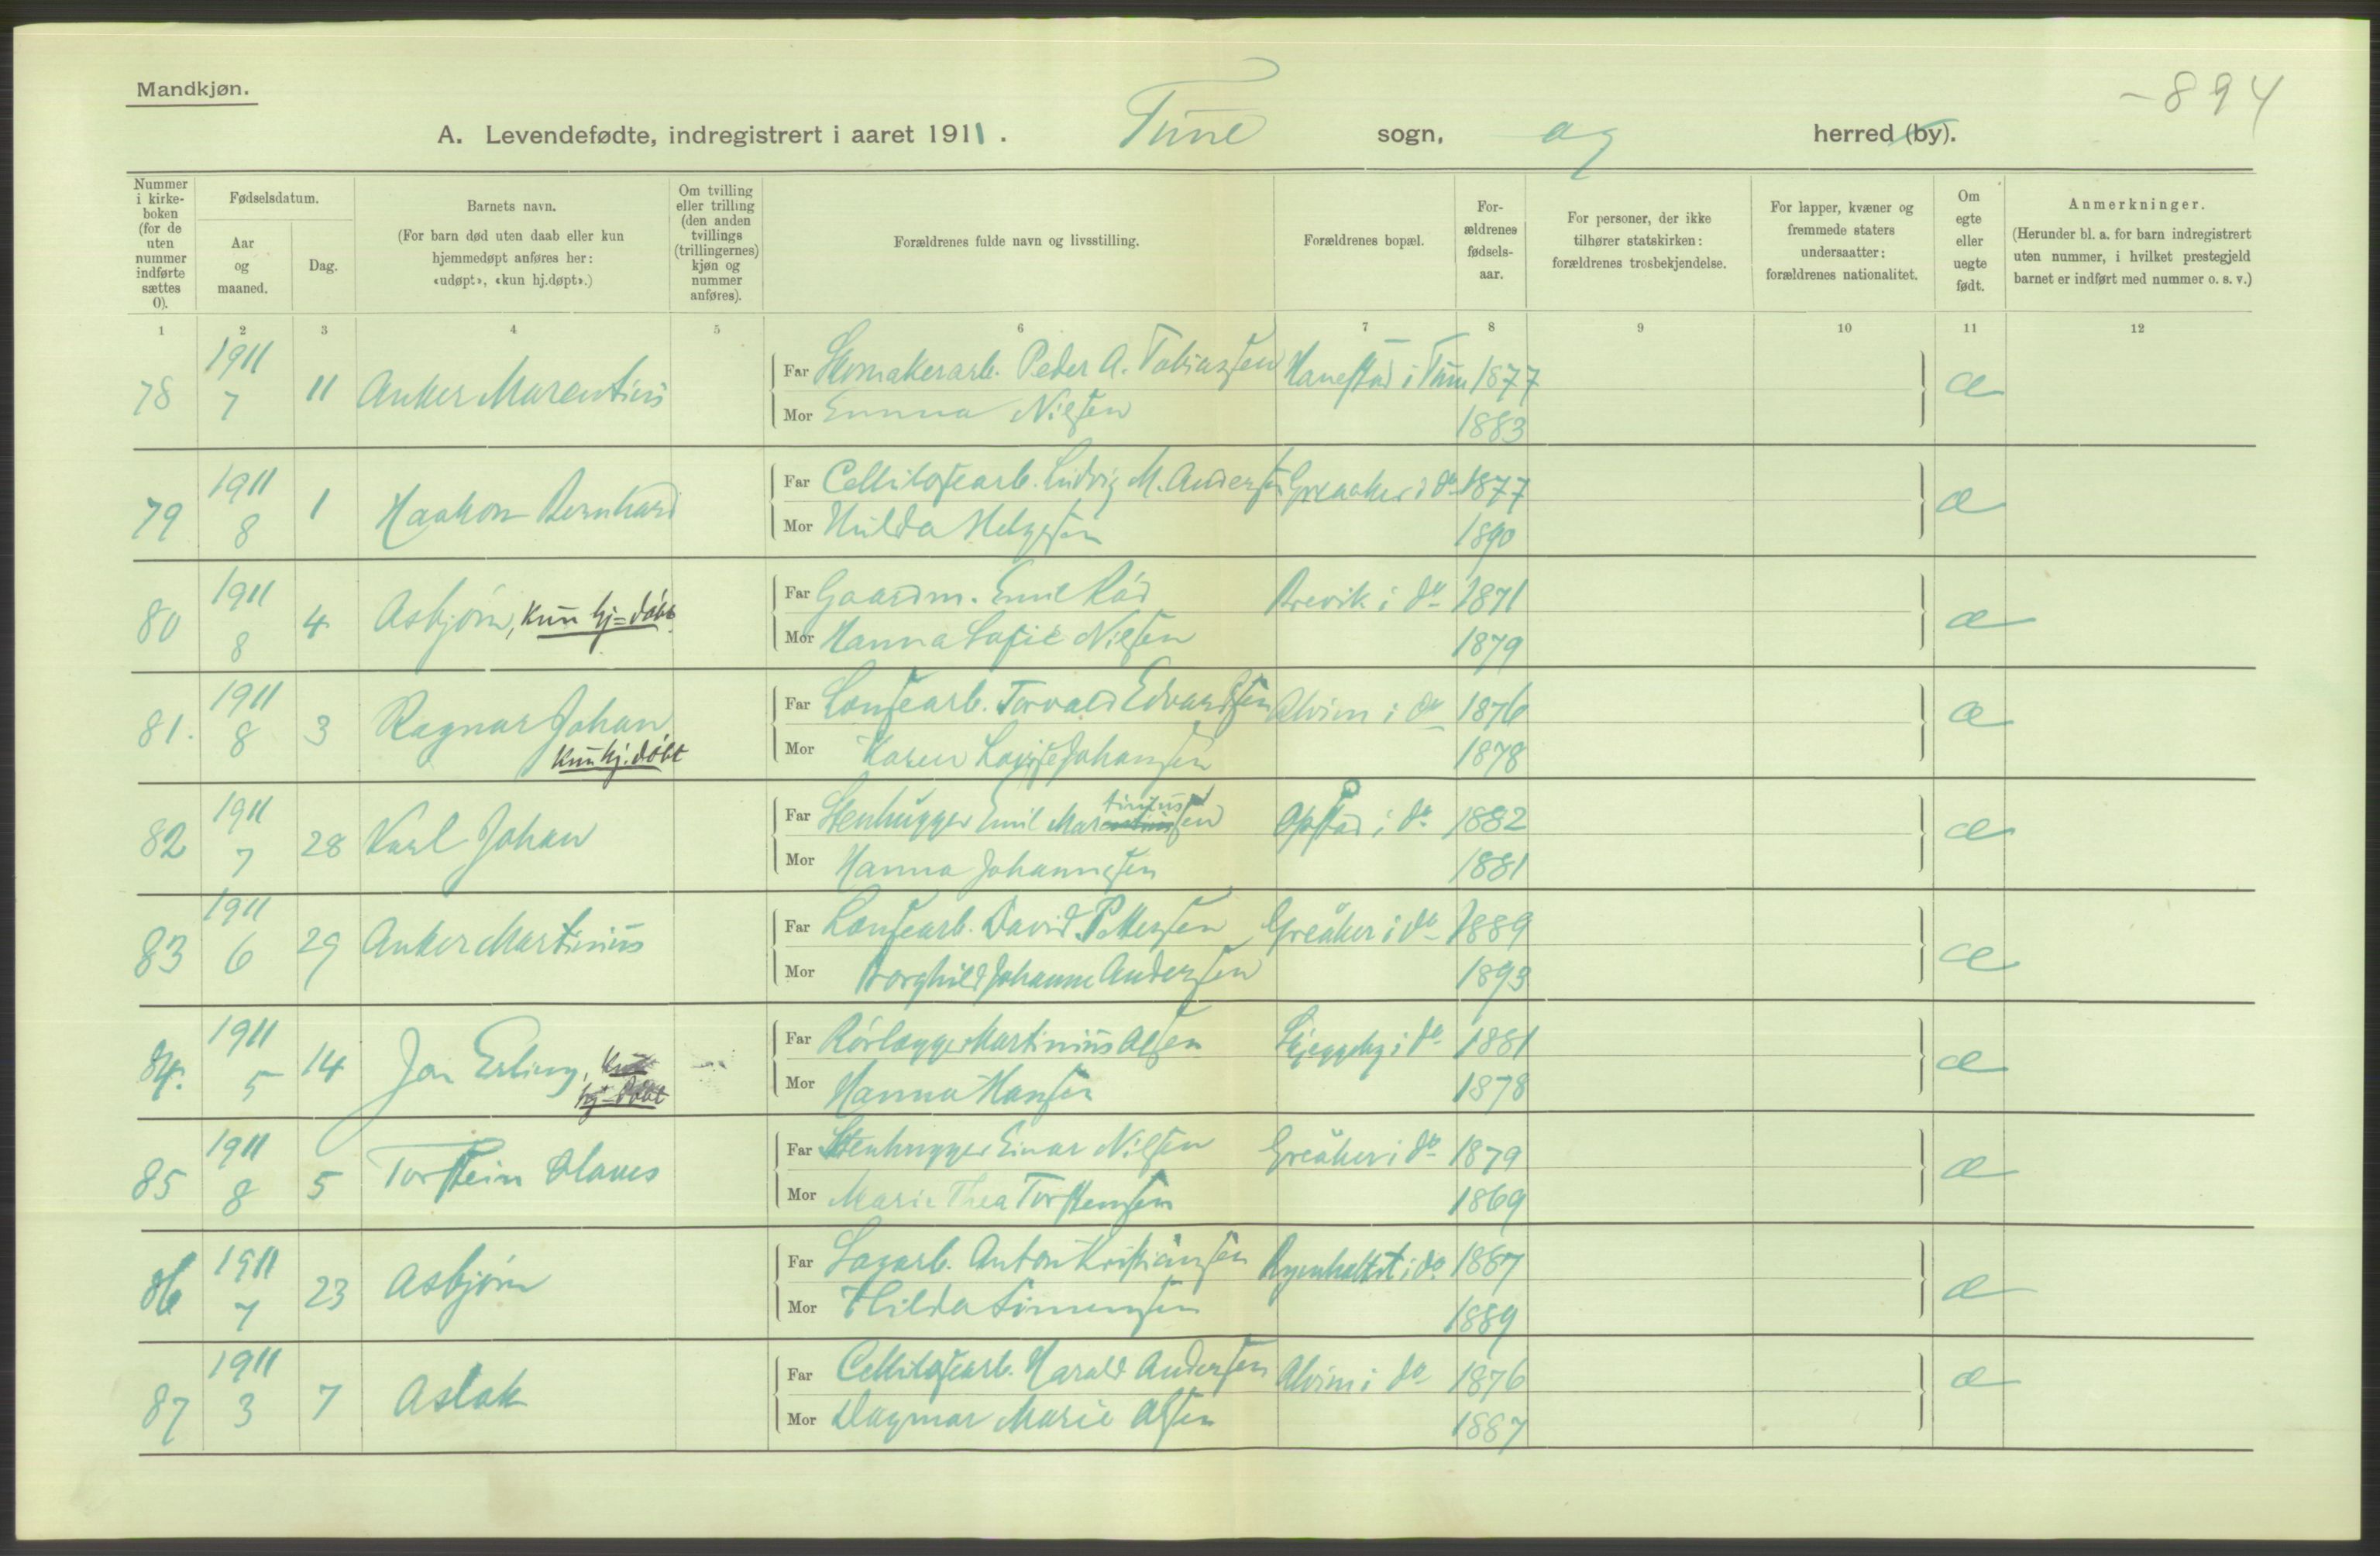 Mandkjøn.
-894
A. Levendefødte, indregistrert i aaret 1911. Tune sogn, og herred (by).
Nummer i kirke-boken (for de uten nummer indførte sættes 0).
Fødselsdatum.
Aar og maaned.
Dag.
Barnets navn.
(For barn død uten daab eller kun hjemmedøpt anføres her: «udøpt», «kun hj.døpt».)
Om tvilling eller trilling (den anden tvillings (trillingernes) kjøn og nummer anføres).
Forældrenes fulde navn og livsstilling.
Forældrenes bopæl.
For-ældrenes fødsels-aar.
For personer, der ikke tilhører statskirken: forældrenes trosbekjendelse.
For lapper, kvæner og fremmede staters undersaatter: forældrenes nationalitet.
Om egte eller uegte født.
Anmerkninger.
(Herunder bl. a. for barn indregistrert uten nummer, i hvilket prestegjeld barnet er indført med nummer o. s. v.)
1 2 3 4 5 6 7 8 9 10 11 12
78 1911 7 11 Anker Marentius Far Skomakerarb. Peder A. Tobiassen Hanestad i Tune 1877 æ
Mor Emma Nilsen 1883
79 1911 8 1 Haakon Bernhard Far Cellulosearb. Ludvig M. Andersen Greaaker i do 1877 æ
Mor Hulda Helgesen 1890
80 1911 8 4 Asbjørn, kun hj=døbt Far Gaardm. Emil Rød Brevik i do 1871 æ
Mor Hanna Sofie Nilsen 1879
81. 1911 8 3 Ragnar Johan kun hj. døbt Far Lensearb. Torvald Edvardsen Alvim i do 1876 æ
Mor Karen Lovise Johansen 1878
82 1911 7 28 Karl Johan Far Stenhugger Emil Martiniussen Opstad i do 1882 æ
Mor Hanna Johannesen 1881
83 1911 6 29 Anker Martinius Far Lensearb. David Pettersen Greåker i do 1889 æ
Mor Borghild Johanne Andersen 1893
84. 1911 5 14 Jon Erling, kun hj=døbt Far Rørlægger Martinius Olsen Skjeggeby i do 1881 æ
Mor Hanna Hansen 1878
85 1911 8 5 Torstein Olaves Far Stenhugger Einar Nilsen Greåker i do 1879 æ
Mor Marie Thea Torstensen 1869
86 1911 7 23 Asbjørn Far Sagarb. Anton Kristiansen i do 1887 æ
Mor Hilda Simensen 1889
87 1911 3 7 Aslak Far Cellulosearb. Harald Andersen Alvim i do 1876 æ
Mor Dagmar Marie Olsen 1887